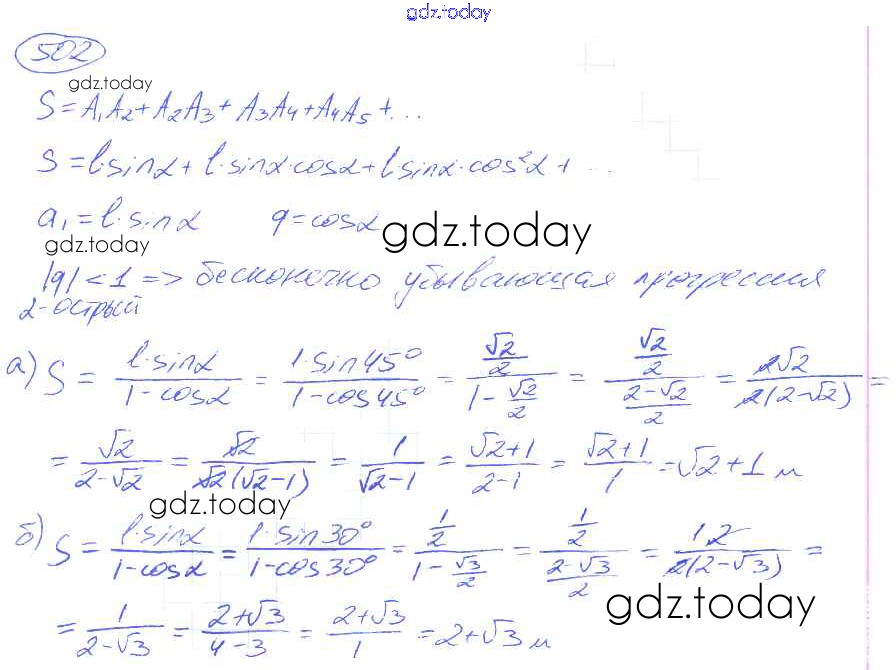 gdz.today
502
gdz.today
S = A₁A₂ + A₂A₃ + A₃A₄ + A₄A₅ + ...
S = l·sinα + l·sinα·cosα + l·sinα·cos²α + ...
a₁ = l·sinα q = cosα
gdz.today
gdz.today
|q| < 1 => бесконечно убывающая прогрессия
α - острый
а) S = (l·sinα)/(1 - cosα) = (1·sin45°)/(1 - cos45°) = (√2/2)/(1 - √2/2) = (√2/2)/((2-√2)/2) = (2√2)/(2(2-√2)) =
= √2/(2-√2) = √2/(√2(√2-1)) = 1/(√2-1) = (√2+1)/(2-1) = (√2+1)/1 = √2+1 м
gdz.today
б) S = (l·sinα)/(1-cosα) = (1·sin30°)/(1-cos30°) = (1/2)/(1 - √3/2) = (1/2)/((2-√3)/2) = (1·2)/(2(2-√3)) =
gdz.today
= 1/(2-√3) = (2+√3)/(4-3) = (2+√3)/1 = 2+√3 м